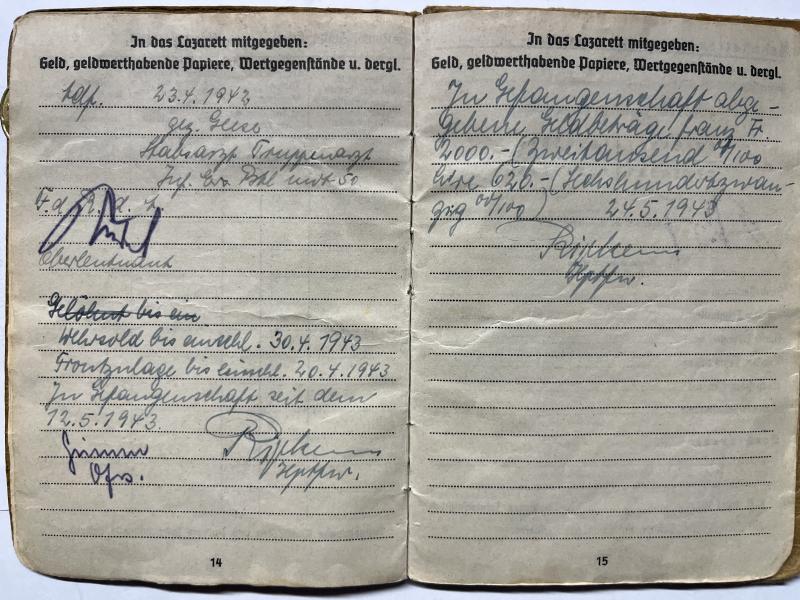 In das Lazarett mitgegeben:
Geld, geldwerthabende Papiere, Wertgegenstände u. dergl.
23.4.1942
gez. Geese
Stabsarzt Truppenarzt
Inf. Ers. Btl mot 50
F. d. R. d. A.
Oberleutnant
Gelöhnt bis ein
Wehrsold bis einschl. 30.4.1943
Frontzulage bis einschl. 20.4.1943
In Gefangenschaft seit dem
12.5.1943
Ofw.
Hptfw.
14
In das Lazarett mitgegeben:
Geld, geldwerthabende Papiere, Wertgegenstände u. dergl.
In Gefangenschaft abge-
gebene Geldbeträge: franz Fr
2000.- (Zweitausend 00/100
Lire 620.- (Sechshundertzwan-
zig 00/100) 24.5.1943
Hptfw.
15